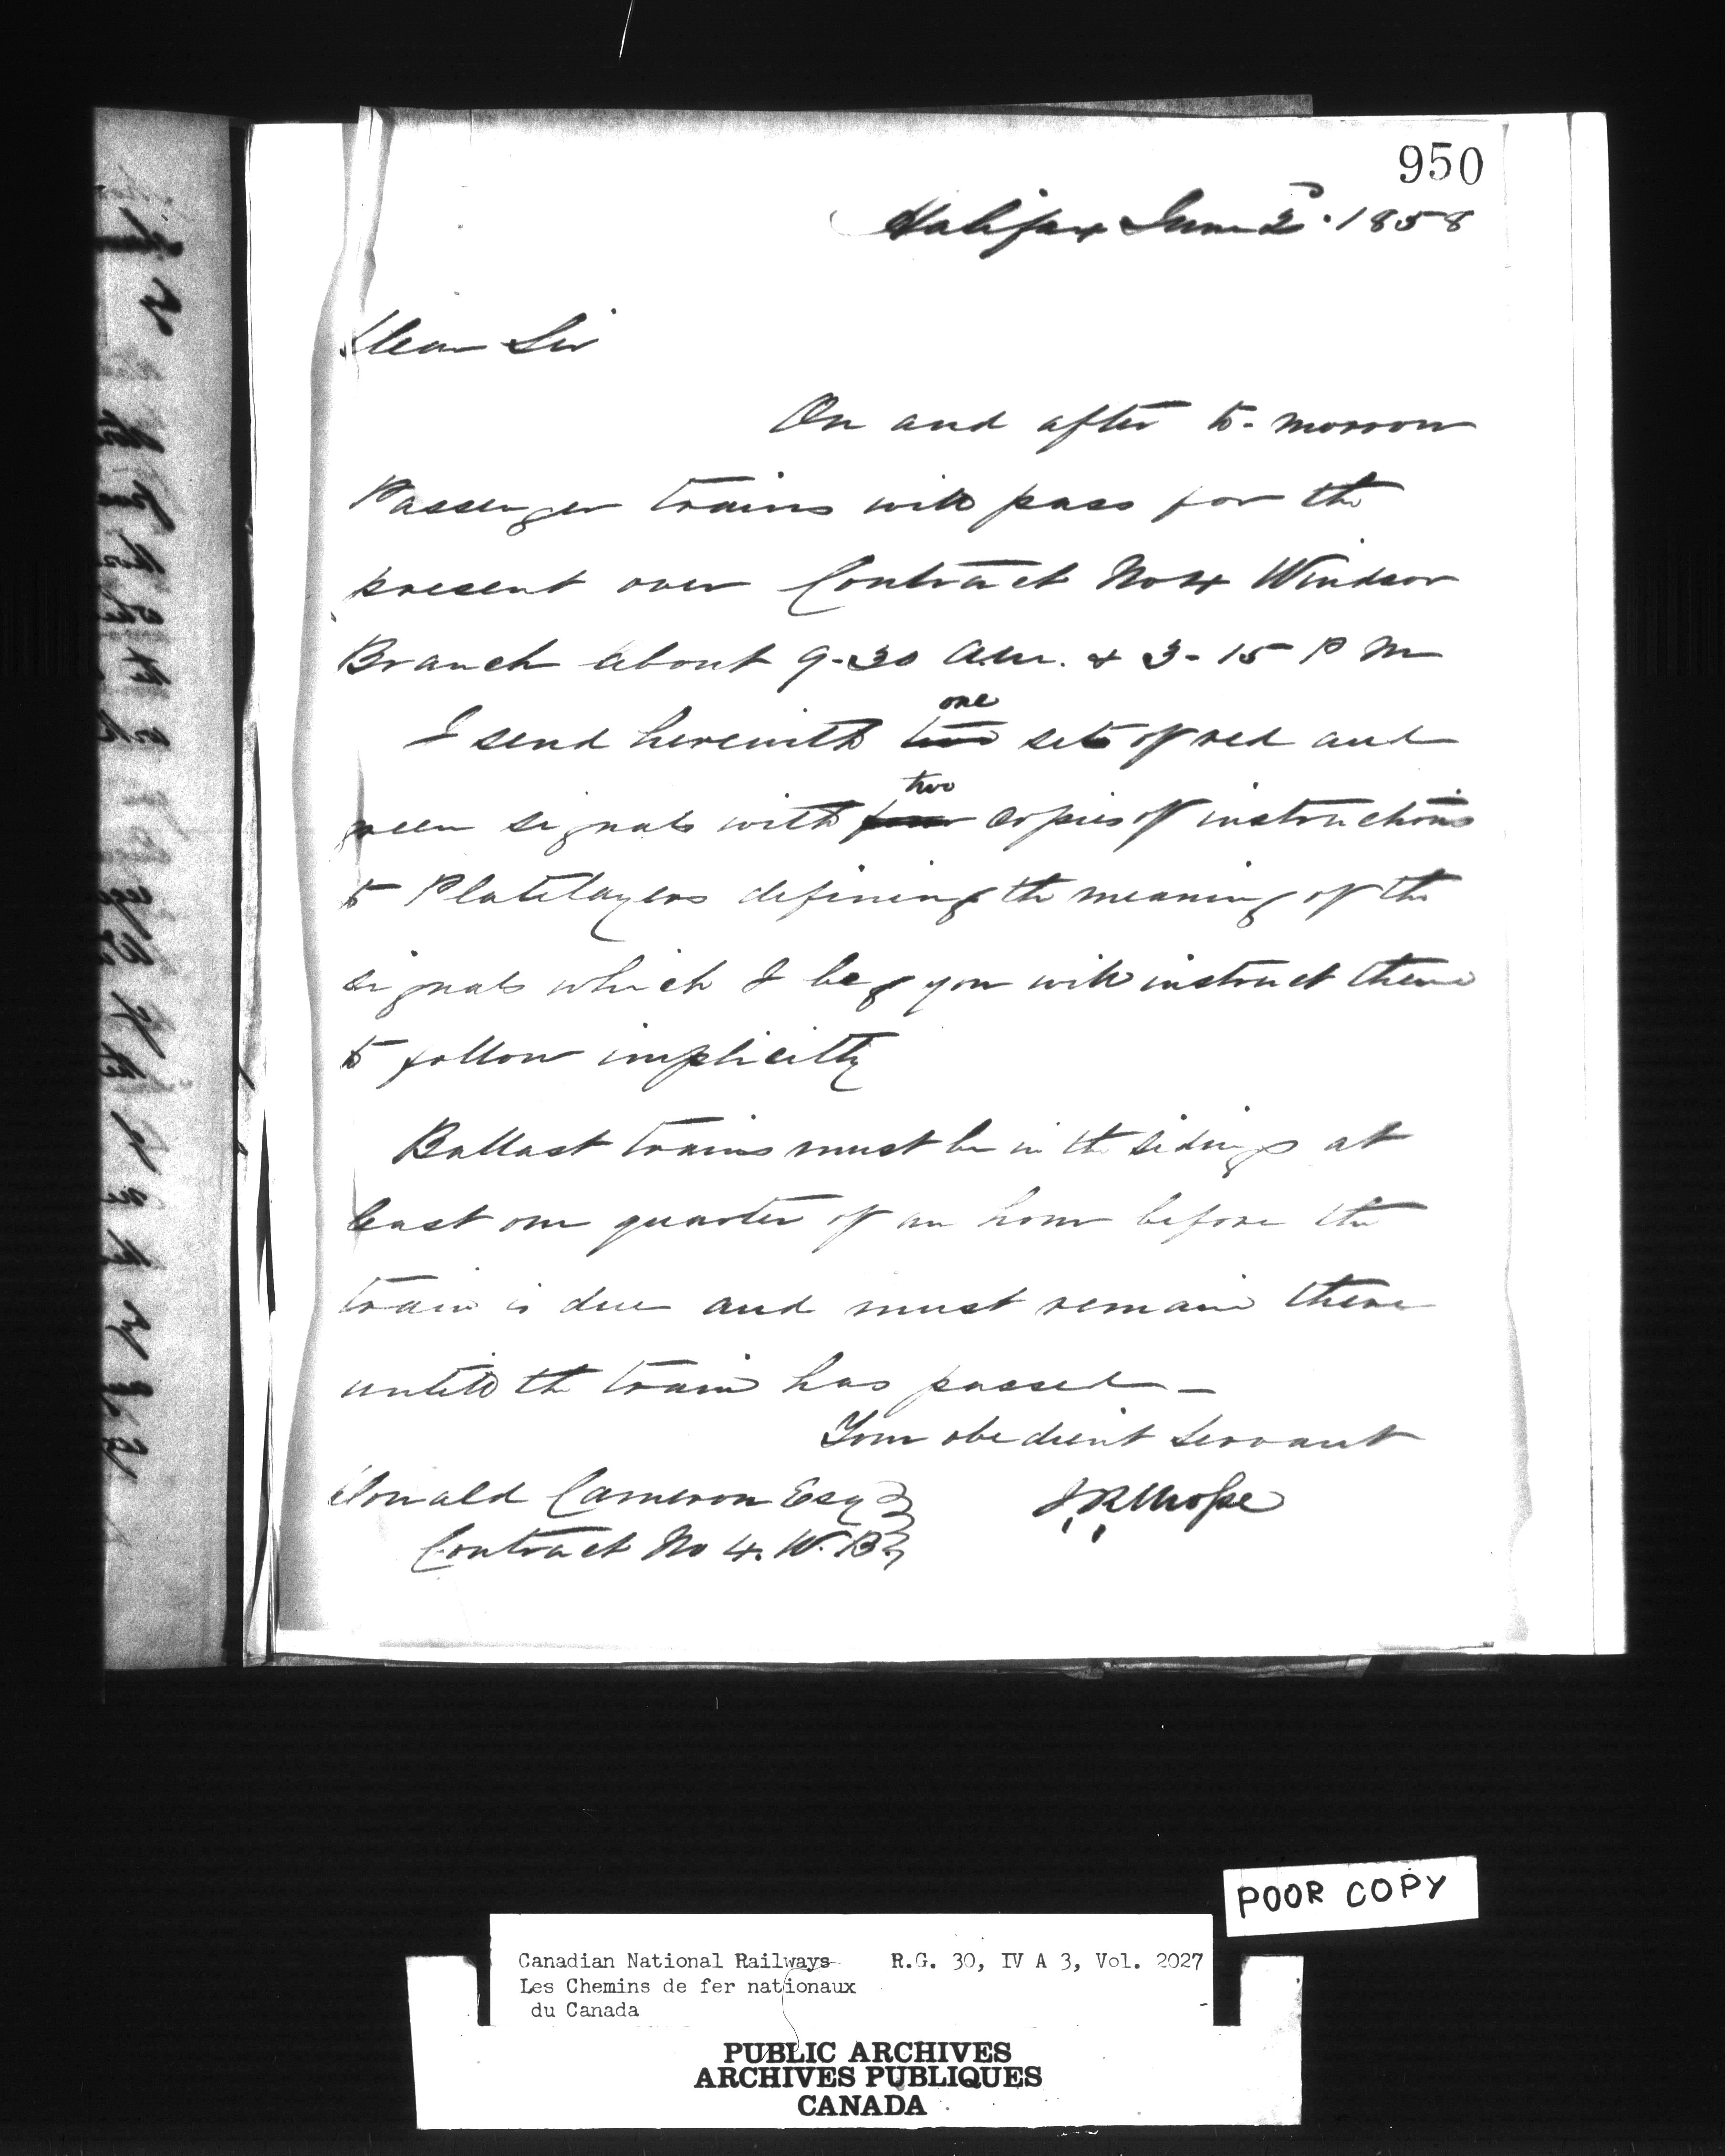 950
Halifax June 2d. 1858
Dear Sir
On and after to-morrow
Passenger trains will pass for the
present over Contract No 4 Windsor
Branch about 9-30 a.m. & 3-15 P M
one
I send herewith two sets of red and
two
green signals with four copies of instructions
to Platelayers defining the meaning of the
signals which I beg you will instruct them
to follow implicitly
Ballast trains must be in the sidings at
least one quarter of an hour before the
train is due and must remain there
untill the train has passed _
Your obedient Servant
Donald Cameron Esq
Contract No 4. W. B.
POOR COPY
Canadian National Railways R.G. 30, IV A 3, Vol. 2027
Les Chemins de fer nationaux
du Canada
PUBLIC ARCHIVES
ARCHIVES PUBLIQUES
CANADA